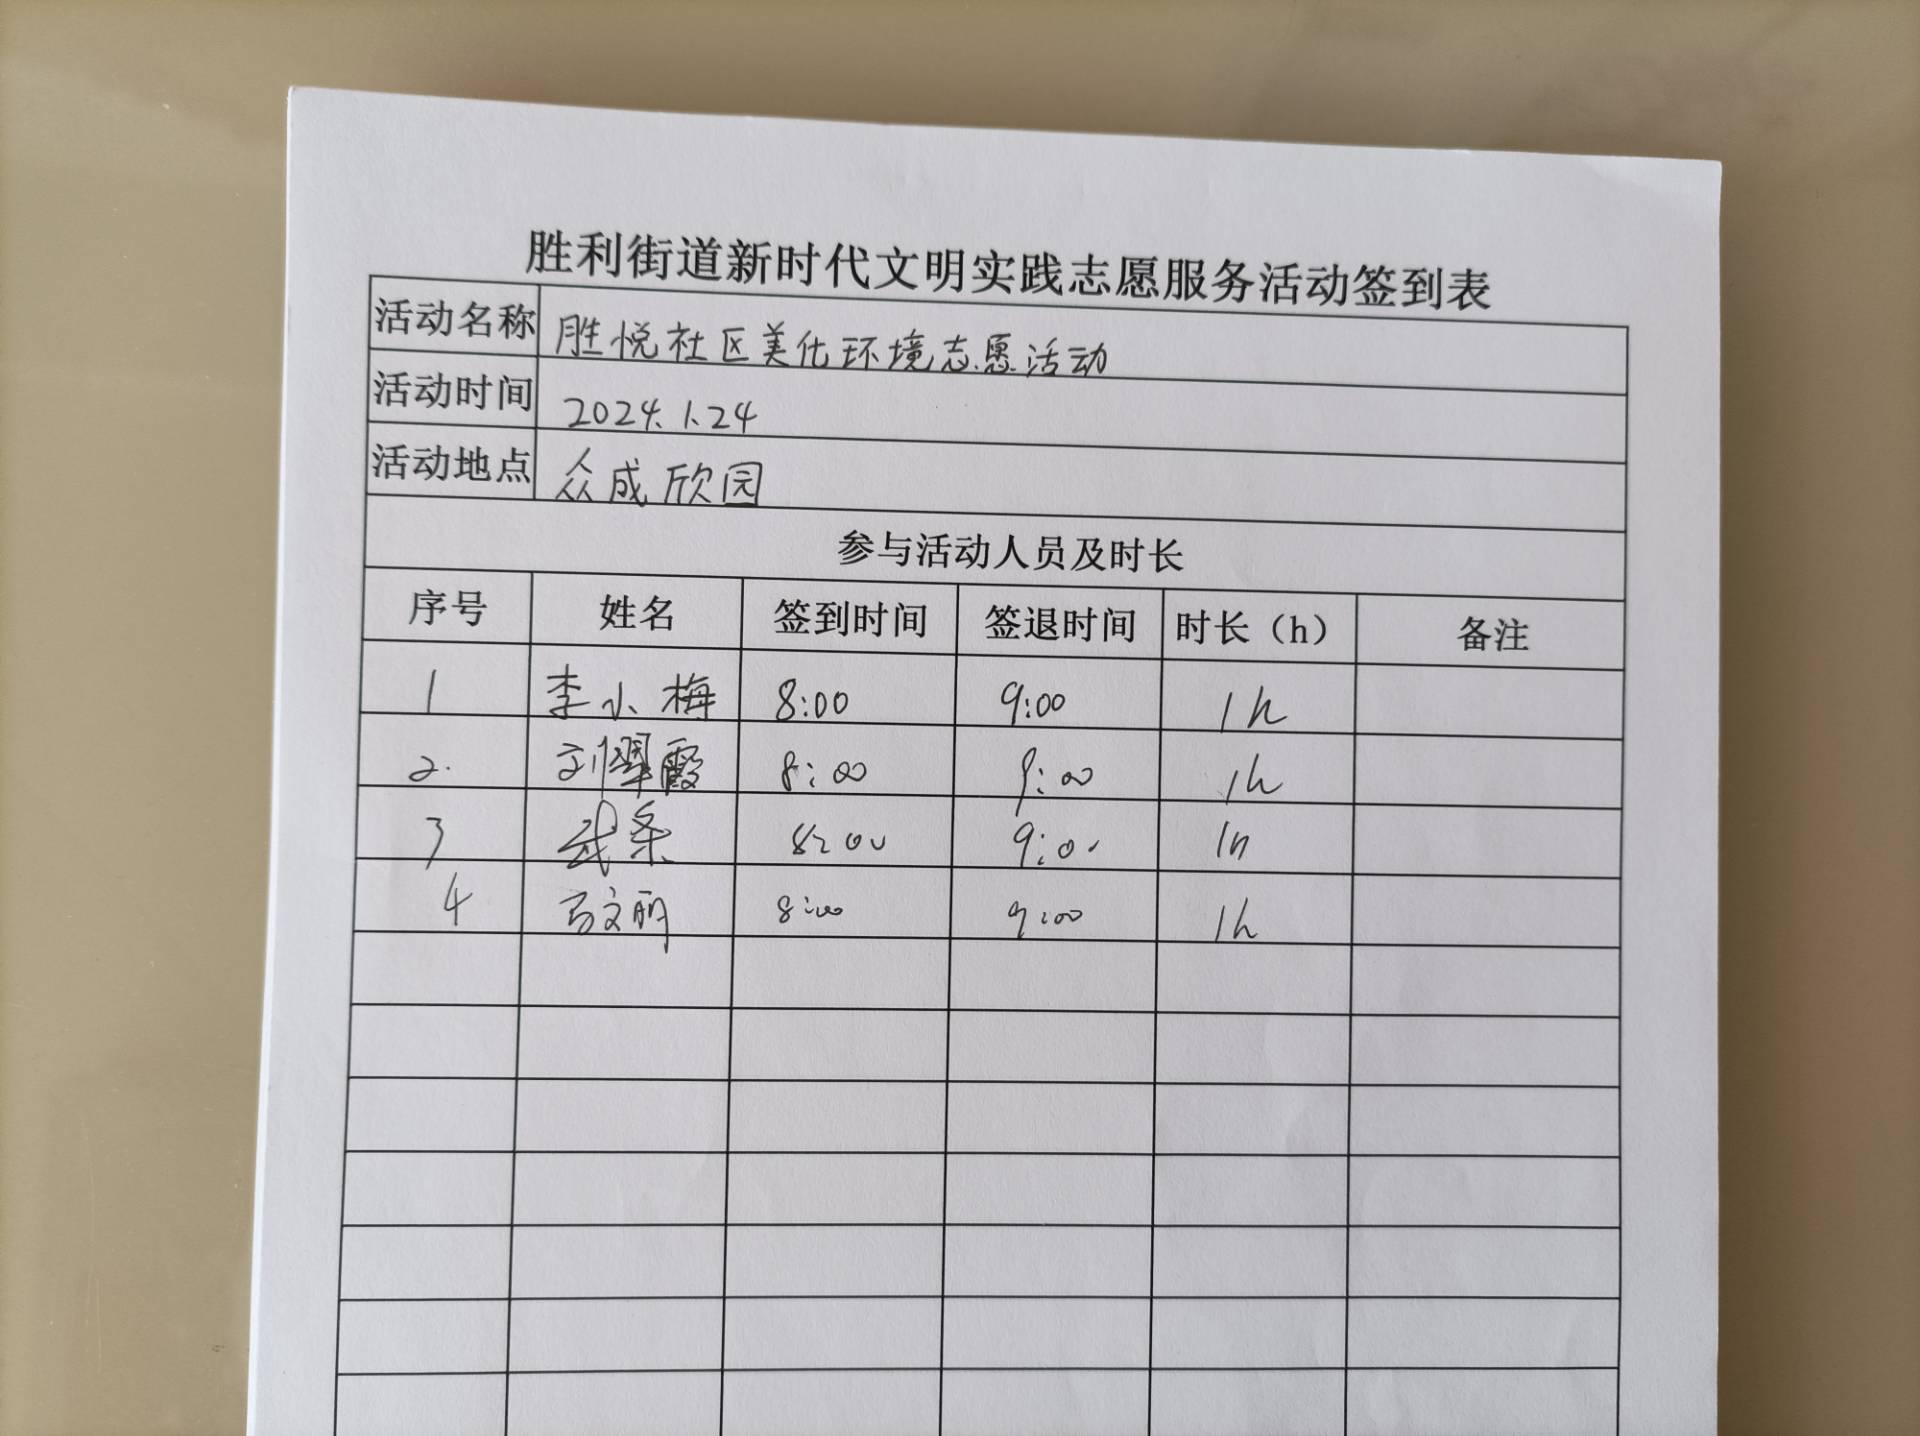 胜利街道新时代文明实践志愿服务活动签到表
活动名称 胜悦社区美化环境志愿活动
活动时间 2024.1.24
活动地点 众成欣园
参与活动人员及时长
序号 姓名 签到时间 签退时间 时长（h） 备注
1 李小梅 8:00 9:00 1h
2. 刘翠霞 8:00 9:00 1h
3 武条 8:00 9:00 1h
4 马文丽 8:00 9:00 1h